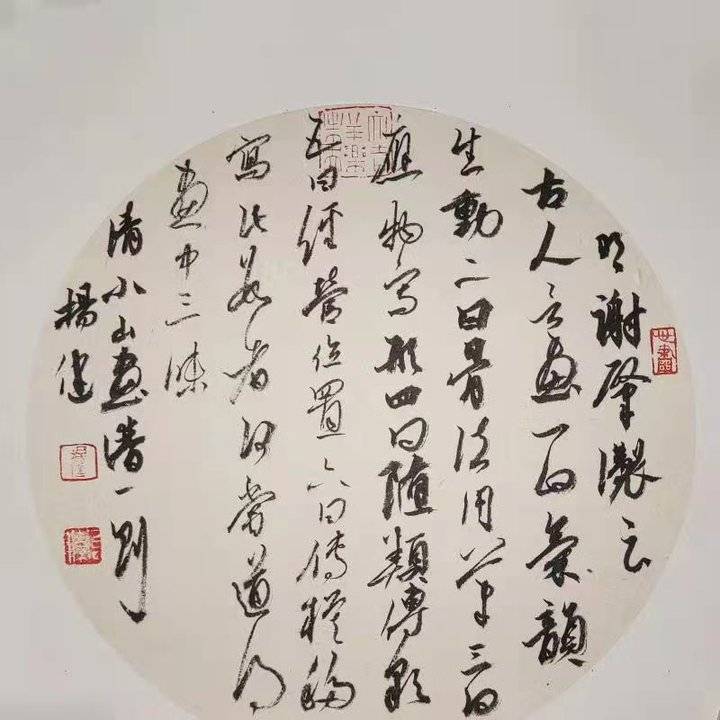 明謝肇淛云
古人言畫一曰氣韻
生動二曰骨法用筆三曰
應物寫形四曰隨類傅彩
五曰經營位置六曰傳模移
寫此數者何嘗道得
畫中三昧
清小山畫譜一則
楊健